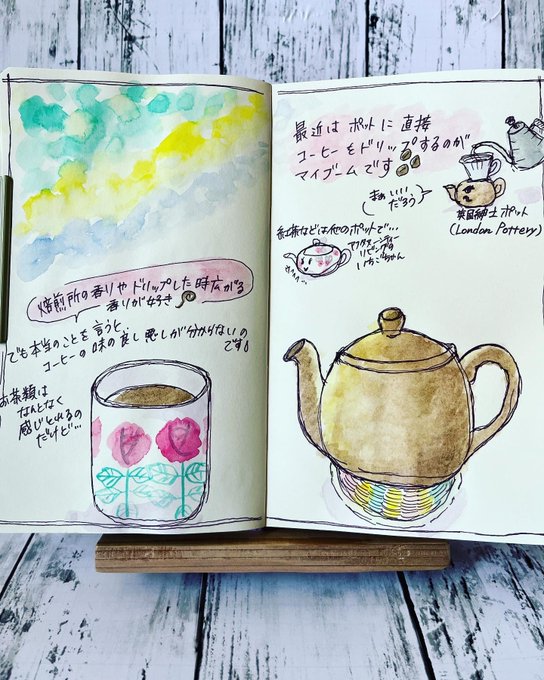 焙煎所の香りやドリップした時広がる
香りが好き
でも本当のことを言うと、
コーヒーの味の良し悪しが分からないの
です。
お茶類は
なんとなく
感じとれるの
だけど…
最近は ポットに 直接
コーヒーをドリップするのが
マイブームです
まぁ いい
だろう
英国紳士ポット
(London Pottery)
紅茶などは他のポットで…
いちごちゃん